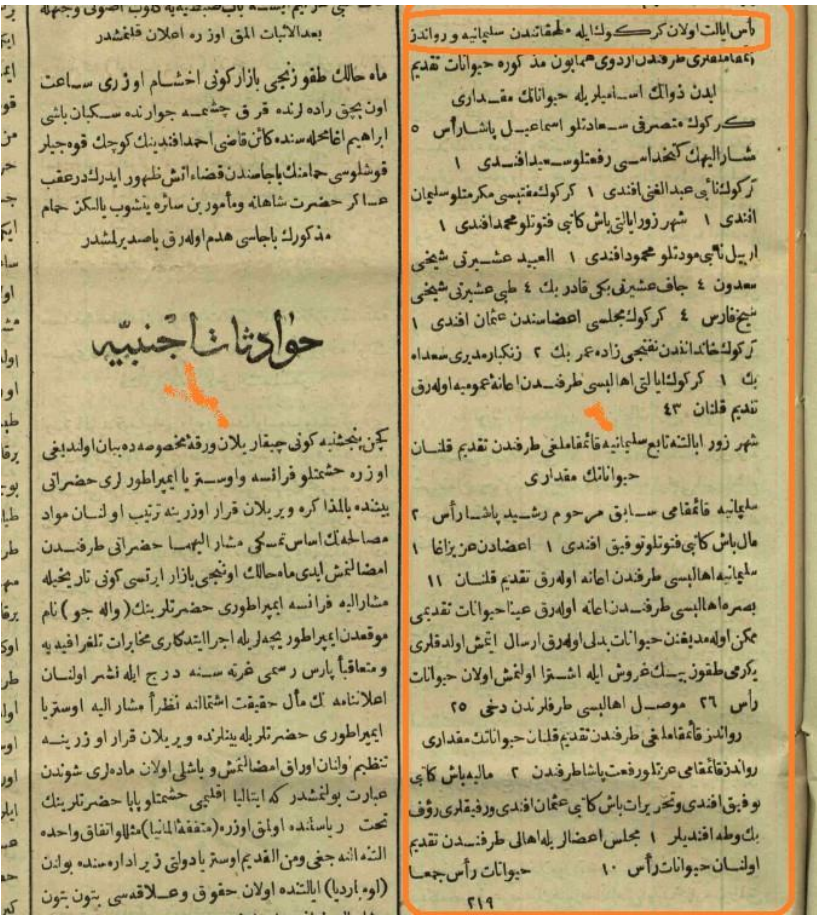 رأس ایالت اولان كركوك ایله ملحقاتندن سلیمانیه و رواندز
قائممقاملقلری طرفندن اردوی همایون مذكوره حیوانات تقدیم
ایدن ذواتك اسامیلریله حیواناتك مقداری
كركوك متصرفی سعادتلو اسماعیل پاشا رأس ٥
مشارالیهك كتخداسی رفعتلو سعید افندی ١
كركوك نائبی عبدالغنی افندی ١ كركوك مفتیسی مكرمتلو سلیمان
افندی ١ شهر زور ایالتی باش كاتبی فتوتلو محمد افندی ١
اربیل نائبی مودتلو محمود افندی ١ العبید عشیرتی شیخی
سعدون ٤ جاف عشیرتی بكی قادر بك ٤ طی عشیرتی شیخی
شیخ فارس ٤ كركوك مجلسی اعضاسندن عثمان افندی ١
كركوك خانداندن نفتجی زاده عمر بك ٢ زنكبار مدیری سعدالله
بك ١ كركوك ایالتی اهالیسی طرفندن اعانهٔ عمومیه اوله رق
تقدیم قلنان ٤٣
شهر زور ایالتنه تابع سلیمانیه قائممقاملغی طرفندن تقدیم قلنان
حیواناتك مقداری
سلیمانیه قائممقامی سابق مرحوم رشید پاشا رأس ٢
مال باش كاتبی فتوتلو توفیق افندی ١ اعضادن عزیز اغا ١
سلیمانیه اهالیسی طرفندن اعانه اوله رق تقدیم قلنان ١١
بصره اهالیسی طرفندن اعانه اوله رق عینا حیوانات تقدیمی
ممكن اوله مدیغندن حیوانات بدلی اوله رق ارسال ایتمش اولدقلری
یكرمی طقوز بیك غروش ایله اشترا اولنمش اولان حیوانات
رأس ٢٦ موصل اهالیسی طرفلرندن دخی ٢٥
رواندز قائممقاملغی طرفندن تقدیم قلنان حیواناتك مقداری
رواندز قائممقامی عزتلو رفعت پاشا طرفندن ٢ مالیه باش كاتبی
توفیق افندی وتحریرات باش كاتبی عثمان افندی ورفیقلری رؤف
بك وطه افندیلر ١ مجلس اعضالریله اهالی طرفندن تقدیم
اولنان حیوانات رأس ١٠ حیوانات رأس جمعا
٢١٩
بعدالاثبات المق اوزره اعلان قلنمشدر
ماه حالك طقوزنجی بازار كونی اخشام اوزری ساعت
اون بچق راده لرنده قرق چشمه جوارنده سكبان باشی
ابراهیم اغا محله سنده كائن قاضی احمد افندینك كوچك قوه جیلر
قوشلوسی حمامنك باجاسندن قضاء اتش ظهور ایدرك درعقب
عساكر حضرت شاهانه ومأمورین سائره یتشوب یالكز حمام
مذكورك باجاسی هدم اوله رق باصدیرلمشدر
حوادثات اجنبیّه
كچن پنجشنبه كونی چیقاریلان ورقهٔ مخصوصه ده بیان اولندیغی
اوزره حشمتلو فرانسه واوستریا ایمپراطورلری حضراتی
بیننده بالمذاكره ویریلان قرار اوزرینه ترتیب اولنان مواد
مصالحه نك اساس تمسكی مشار الیهما حضراتی طرفندن
امضالنمش ایدی ماه حالك اوننجی بازار ایرتسی كونی تاریخیله
مشارالیه فرانسه ایمپراطوری حضرتلرینك (واله جو) نام
موقعدن ایمپراطوریچه لریله اجرا ایتدكلری مخابرات تلغرافیه یه
ومتعاقبا پارس رسمی غزته سنه درج ایله نشر اولنان
اعلاننامه نك مآل حقیقت اشتمالنه نظرا مشار الیه اوستریا
ایمپراطوری حضرتلریله بینلرنده ویریلان قرار اوزرینه
تنظیم اولنان اوراق امضالنمش و باشلی اولان ماده لری شوندن
عبارت بولنمشدر كه ایتالیا اقلیمی حشمتلو پاپا حضرتلرینك
تحت ریاستنده اولمق اوزره (متفقهٔ المانیا) مثللو اتفاق واحده
التنه النه جغی ومن القدیم اوستریا دولتی زیر اداره سنده بولنان
(لومباردیا) ایالتنده اولان حقوق وعلاقه سی بتون بتون